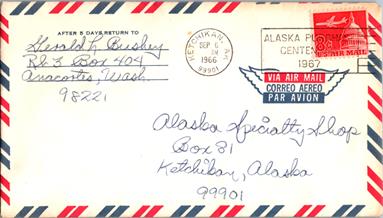 AFTER 5 DAYS RETURN TO
Gerald L Bushey
Rt 3 Box 404
Anacortes, Wash.
98221
KETCHIKAN, AK
SEP 6
1966
99901
ALASKA PURCHASE
CENTENNIAL
1967
8¢
US AIR MAIL
VIA AIR MAIL
CORREO AEREO
PAR AVION
Alaska Specialty Shop
Box 81
Ketchikan, Alaska
99901